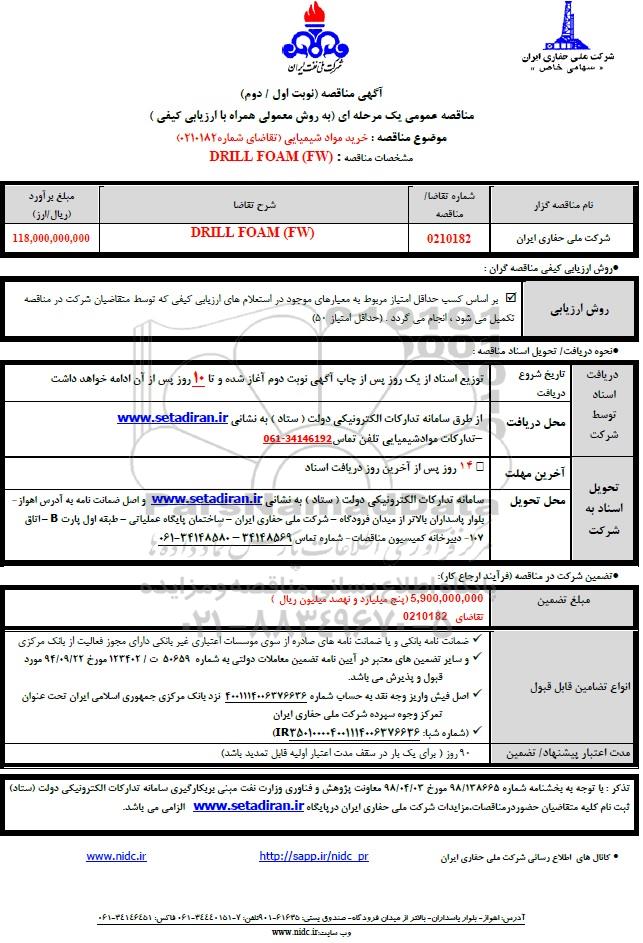 شرکت ملی نفت ایران
شرکت ملی حفاری ایران
« سهامی خاص »
آگهی مناقصه (نوبت اول / دوم)
مناقصه عمومی یک مرحله ای (به روش معمولی همراه با ارزیابی کیفی )
موضوع مناقصه : خرید مواد شیمیایی (تقاضای شماره۰۲۱۰۱۸۲)
مشخصات مناقصه : DRILL FOAM (FW)
نام مناقصه گزار
شماره تقاضا/ مناقصه
شرح تقاضا
مبلغ برآورد (ریال/ارز)
شرکت ملی حفاری ایران
0210182
DRILL FOAM (FW)
118,000,000,000
•روش ارزیابی کیفی مناقصه گران :
روش ارزیابی
☑ بر اساس کسب حداقل امتیاز مربوط به معیارهای موجود در استعلام های ارزیابی کیفی که توسط متقاضیان شرکت در مناقصه
تکمیل می شود ، انجام می گردد . (حداقل امتیاز ۵۰)
•نحوه دریافت/ تحویل اسناد مناقصه :
دریافت اسناد توسط شرکت
تاریخ شروع دریافت
توزیع اسناد از یک روز پس از چاپ آگهی نوبت دوم آغاز شده و تا ۱۰ روز پس از آن ادامه خواهد داشت
محل دریافت
از طرق سامانه تدارکات الکترونیکی دولت ( ستاد ) به نشانی www.setadiran.ir
–تدارکات موادشیمیایی تلفن تماس 061-34146192
تحویل اسناد به شرکت
آخرین مهلت
۱۴ روز پس از آخرین روز دریافت اسناد
محل تحویل
سامانه تدارکات الکترونیکی دولت ( ستاد ) به نشانی www.setadiran.ir و اصل ضمانت نامه به آدرس اهواز –
بلوار پاسداران بالاتر از میدان فرودگاه – شرکت ملی حفاری ایران – ساختمان پایگاه عملیاتی – طبقه اول پارت B – اتاق
۱۰۷- دبیرخانه کمیسیون مناقصات – شماره تماس ۳۴۱۴۸۵۶۹ – ۳۴۱۴۸۵۸۰-۰۶۱
•تضمین شرکت در مناقصه (فرآیند ارجاع کار):
مبلغ تضمین
5,900,000,000 (پنج میلیارد و نهصد میلیون ریال )
تقاضای 0210182
انواع تضامین قابل قبول
✓ ضمانت نامه بانکی و یا ضمانت نامه های صادره از سوی موسسات اعتباری غیر بانکی دارای مجوز فعالیت از بانک مرکزی
✓ و سایر تضمین های معتبر در آیین نامه تضمین معاملات دولتی به شماره ۵۰۶۵۹ ت / ۱۲۳۴۰۲ مورخ ۹۴/۰۹/۲۲ مورد
قبول و پذیرش می باشد.
✓ اصل فیش واریز وجه نقد به حساب شماره ۴۰۰۱۱۱۴۰۰۶۳۷۶۶۳۶ نزد بانک مرکزی جمهوری اسلامی ایران تحت عنوان
تمرکز وجوه سپرده شرکت ملی حفاری ایران
✓ (شماره شبا: IR۳۵۰۱۰۰۰۰۴۰۰۱۱۱۴۰۰۶۳۷۶۶۳۶)
مدت اعتبار پیشنهاد/ تضمین
۹۰ روز ( برای یک بار در سقف مدت اعتبار اولیه قابل تمدید باشد)
تذکر : با توجه به بخشنامه شماره ۹۸/۱۳۸۶۶۵ مورخ ۹۸/۰۴/۰۳ معاونت پژوهش و فناوری وزارت نفت مبنی بریکارگیری سامانه تدارکات الکترونیکی دولت (ستاد)
ثبت نام کلیه متقاضیان حضوردرمناقصات،مزایدات شرکت ملی حفاری ایران درپایگاه www.setadiran.ir الزامی می باشد.
• کانال های اطلاع رسانی شرکت ملی حفاری ایران
http://sapp.ir/nidc_pr
www.nidc.ir
آدرس: اهواز- بلوار پاسداران- بالاتر از میدان فرودگاه- صندوق پستی: ۶۱۶۳۵-۹۰۱تلفن: ۷-۳۴۴۴۰۱۵۱-۰۶۱ فاکس: ۳۴۱۴۶۴۵۱-۰۶۱
وب سایت:www.nidc.ir
ParsNamadData
پایگاه اطلاع رسانی مناقصه و مزایده